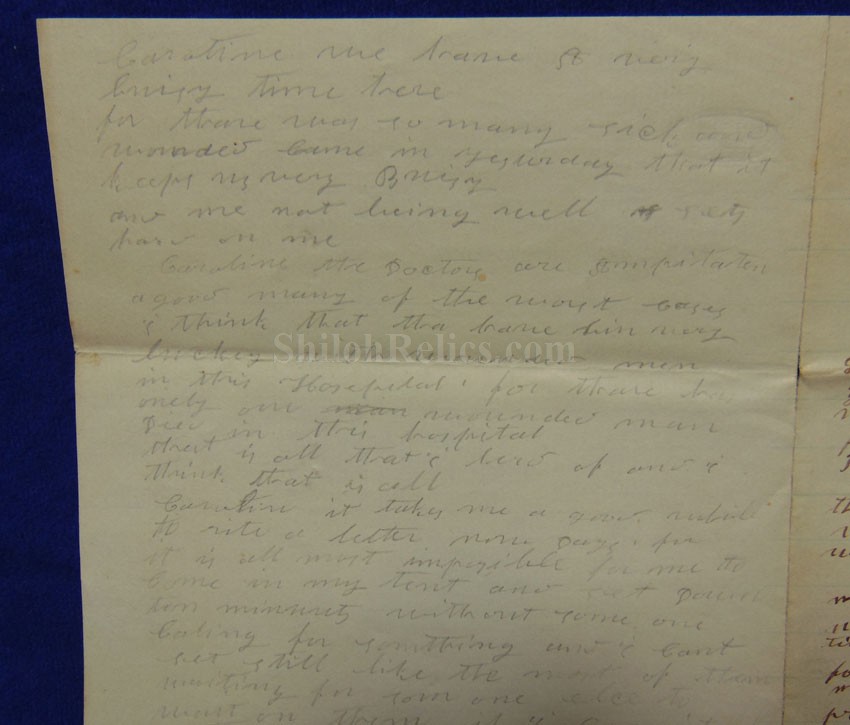 Caroline we have A very
buisy time here
for thare was so many sick and
wounded Came in yesterday that it
keeps us very Buisy
and me not being well it sets
hard on me
Caroline the Doctors are Ampitaten
a good many of the worst cases
i think that tha have bin very
luckey with wounded men
in this Hosepital for thare has
onely one man wounded man
Died in this hospital
that is all that i herd of and i
think that is all
Caroline it takes me a good while
to rite a letter now days for
it is all most impossible for me to
Come in my tent and set down
ten minuets without some one
Caling for something and i cant
set still like the most of them
waiting for som one else to
wait on them
ShilohRelics.com